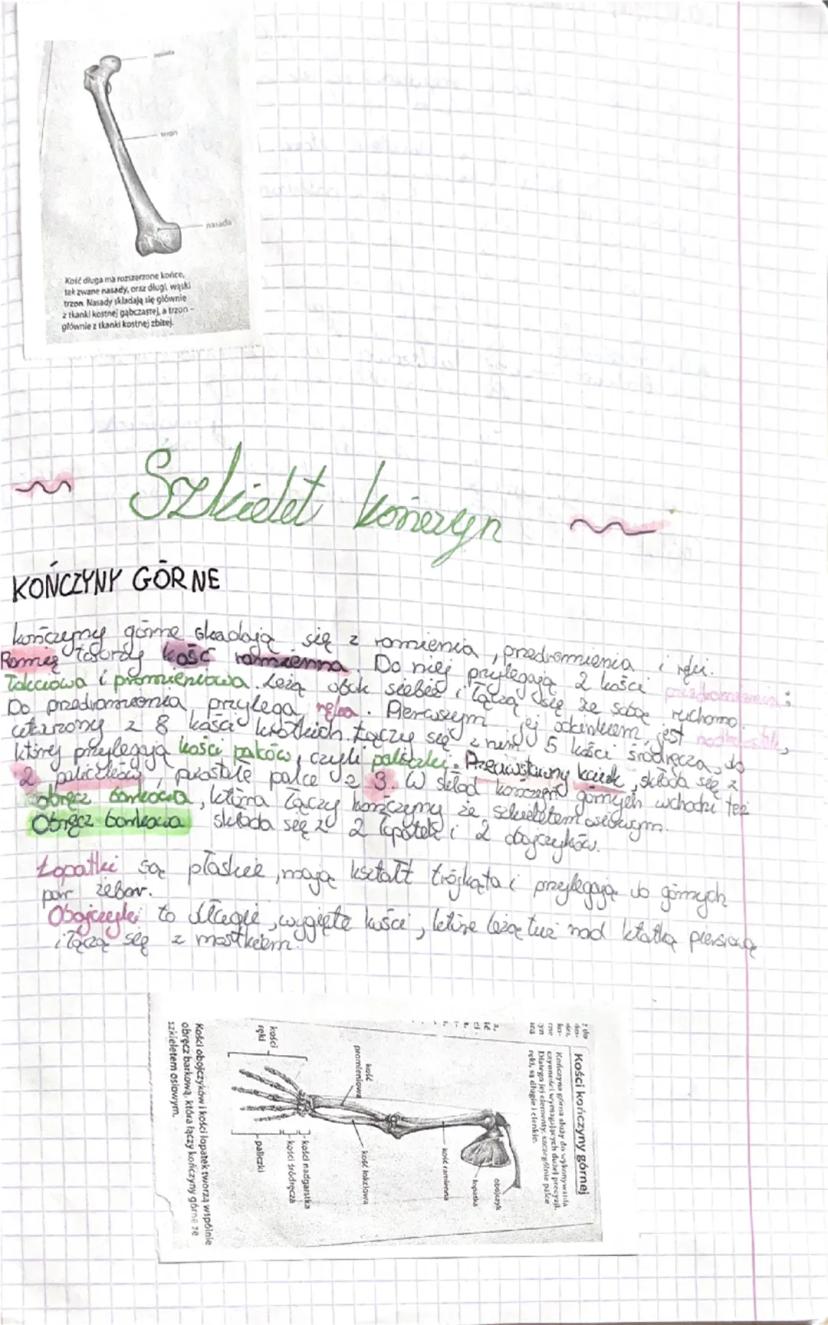 nasada
trzon
nasada
Kość długa ma rozszerzone końce,
tak zwane nasady, oraz długi, wąski
trzon. Nasady składają się głównie
z tkanki kostnej gąbczastej, a trzon –
głównie z tkanki kostnej zbitej.
Szkielet kończyn
KOŃCZYNY GÓRNE
kończyny górne składają się z ramienia, przedramienia i ręki.
Ramię tworzy kość ramienna. Do niej przylegają 2 kości przedramienia:
łokciowa i promieniowa. Leżą obok siebie i łączą się ze sobą ruchomo.
Do przedramienia przylega ręka. Pierwszym jej odcinkiem jest nadgarstek,
utworzony z 8 kości krótkich. Łączy się z nim 5 kości śródręcza, do
której przylegają kości palców, czyli paliczki. Przeciwstawny kciuk, składa się z
2 paliczków, pozostałe palce z 3. W skład kończyn górnych wchodzi też
obręcz barkowa, która łączy kończyny ze szkieletem osiowym.
Obręcz barkowa składa się z 2 łopatek i 2 obojczyków.
Łopatki są płaskie, mają kształt trójkąta i przylegają do górnych
par żeber.
Obojczyki to długie, wygięte kości, które leżą tuż nad klatką piersiową
i łączą się z mostkiem.
Kości kończyny górnej
Kończyna górna służy do wykonywania
czynności wymagających dużej precyzji.
Dlatego jej elementy, szczególnie palce
ręki, są długie i cienkie.
obojczyk
łopatka
kość ramienna
kość łokciowa
kość promieniowa
kości ręki
kości nadgarstka
kości śródręcza
paliczki
Kości obojczyków i kości łopatek tworzą wspólnie
obręcz barkową, która łączy kończyny górne ze
szkieletem osiowym.